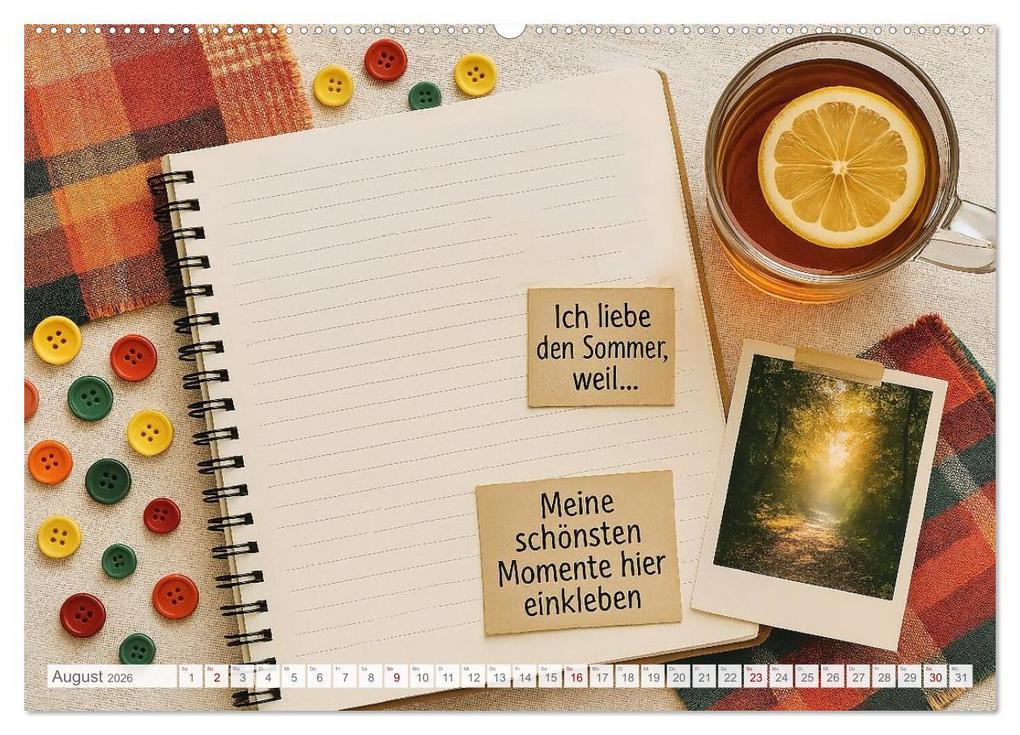 Ich liebe
den Sommer,
weil...
Meine
schönsten
Momente hier
einkleben
August 2026
Sa So Mo Di Mi Do Fr Sa So Mo Di Mi Do Fr Sa So Mo Di Mi Do Fr Sa So Mo Di Mi Do Fr Sa So Mo
1 2 3 4 5 6 7 8 9 10 11 12 13 14 15 16 17 18 19 20 21 22 23 24 25 26 27 28 29 30 31